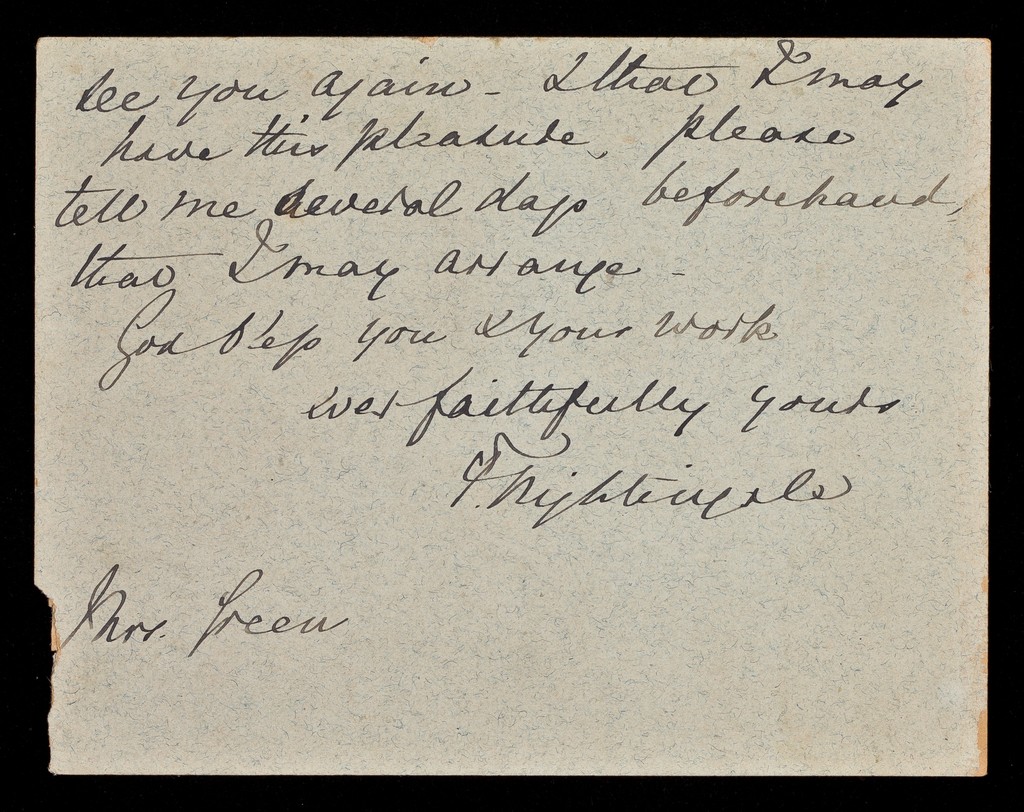 see you again - & that I may
have this pleasure, please
tell me several days beforehand,
that I may arrange -
God bless you & your work
ever faithfully yours
F. Nightingale
Mrs. Green